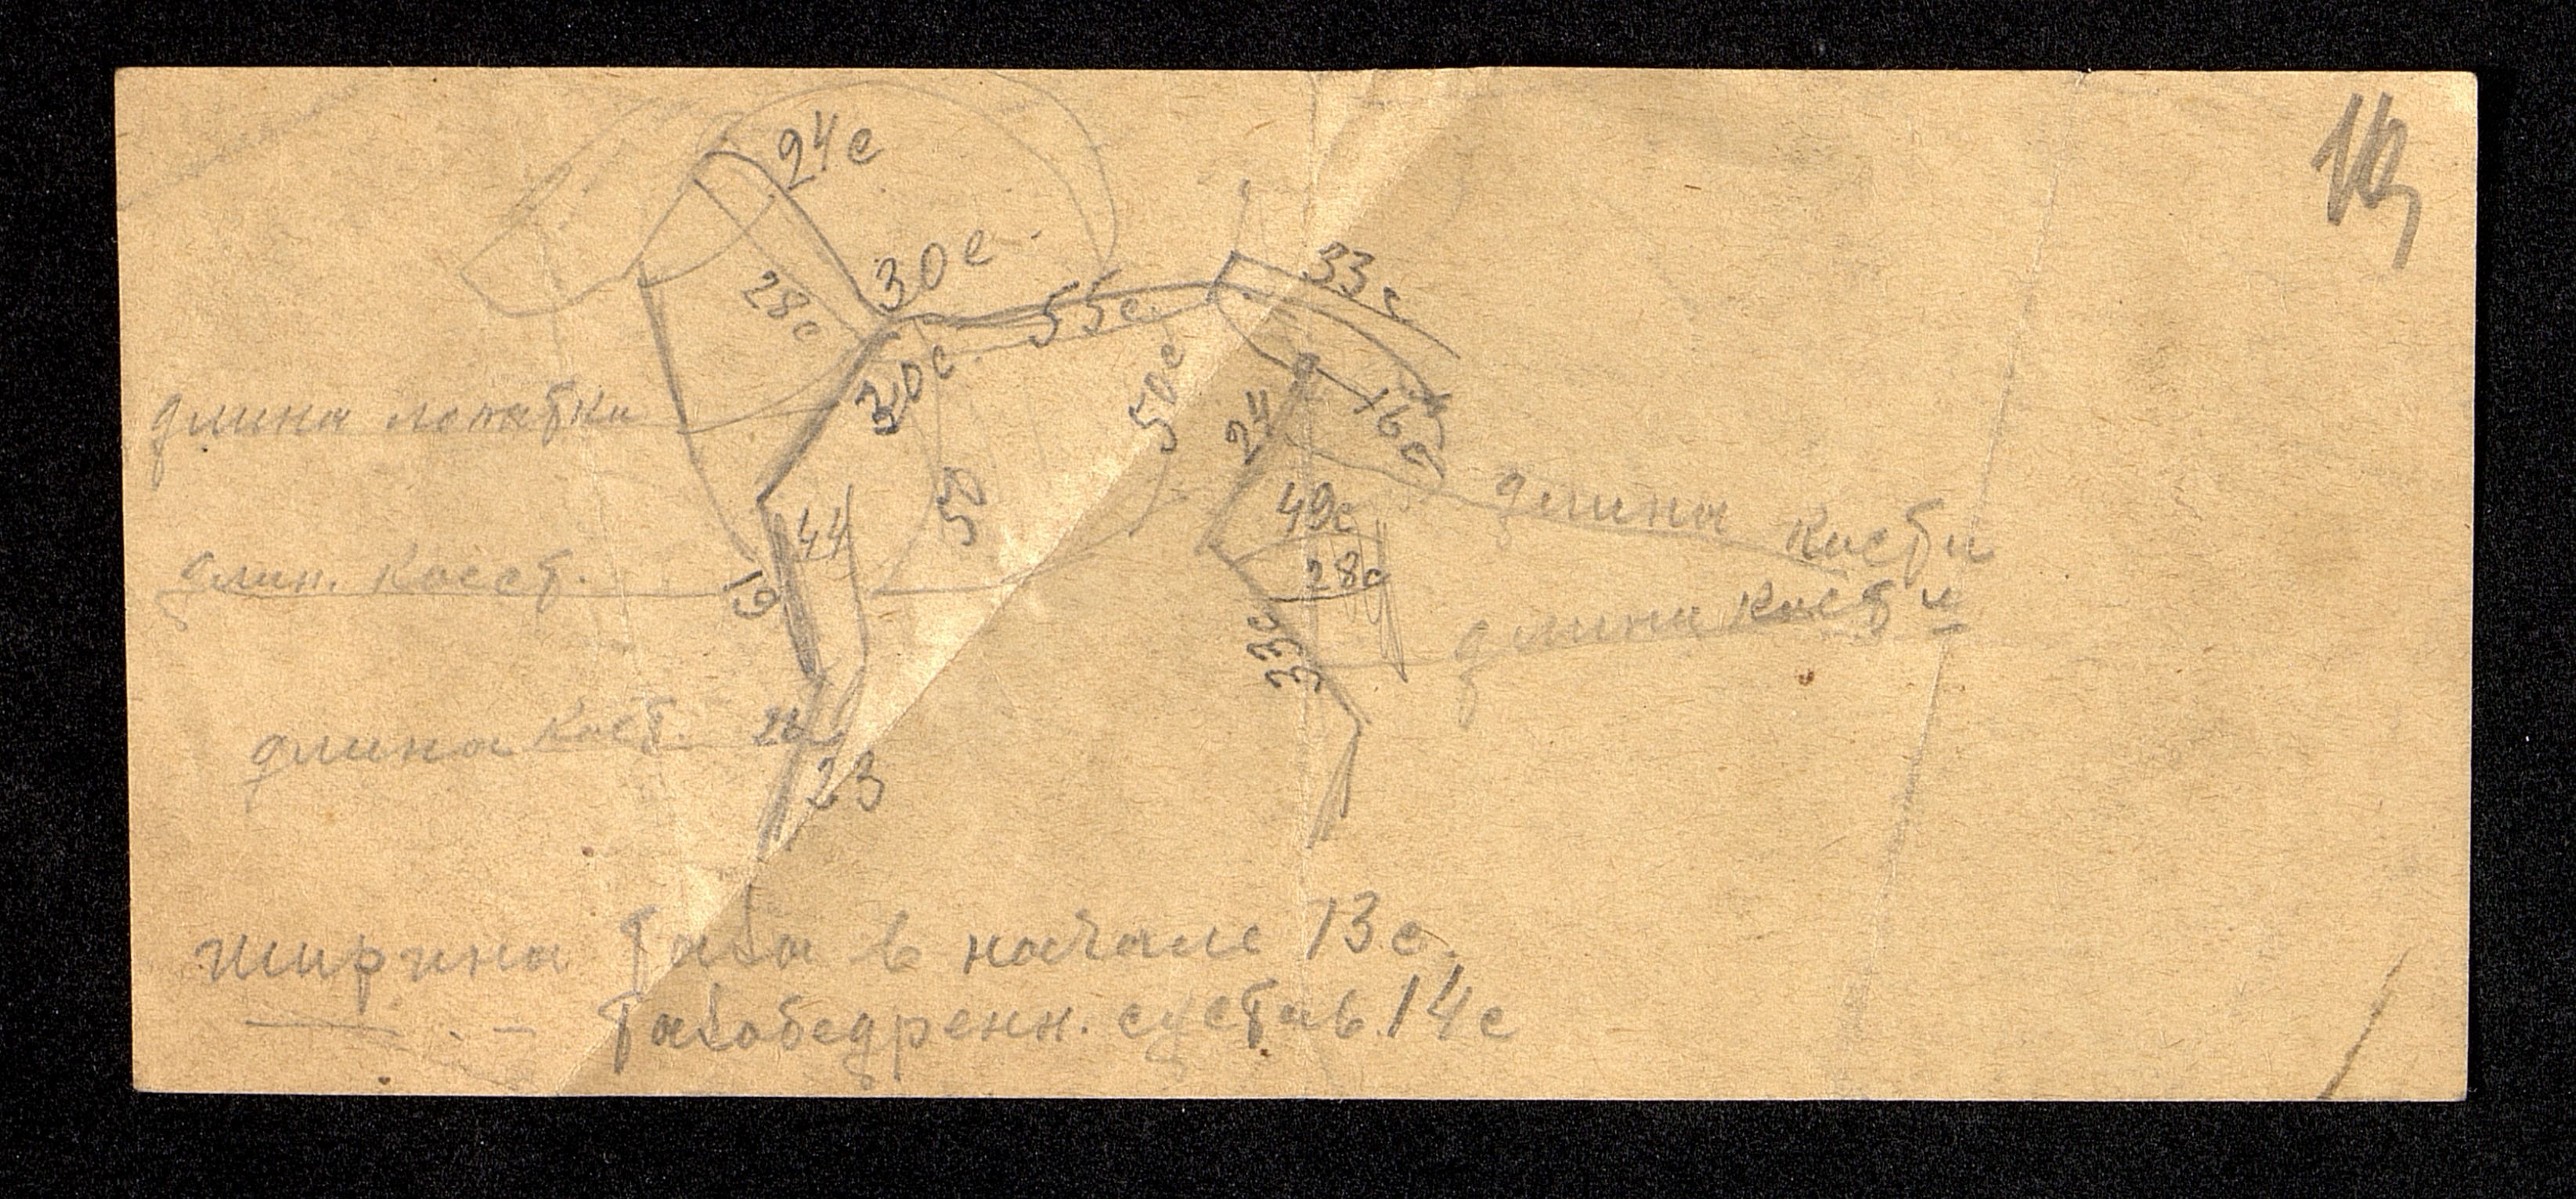 24с
30с.
28с
55с.
33с
30с.
50с
16с
24
длина лопатки
длина кости
50
44
49с
длин. косст.
61
28с
длина кости
33с
длина кост.
23
ширина таза в начале 13с.
— . — тазобедренн. сустав. 14с